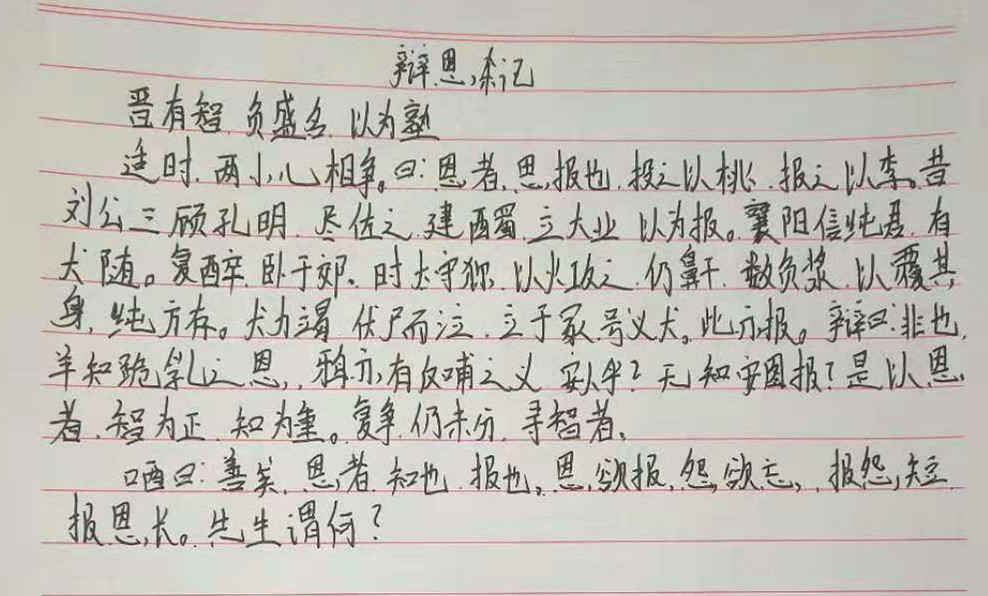 辩恩杂记
晋有智.负盛名.以为塾
适时.两小儿相争。曰:恩者.思报也.投之以桃.报之以李。昔
刘公三顾孔明.尽佐之.建西蜀.立大业.以为报。襄阳信纯君.有
犬随。复醉.卧于郊.时太守猕.以火攻之.仍鼻干.数负浆.以覆其
身.纯方存。犬力竭.伏尸而泣.立于冢.号义犬。此亦报。辩曰:非也.
羊知跪乳之恩.鸦亦有反哺之义.安人乎?无知安图报?是以恩
者.智为正.知为重。复争.仍未分.寻智者.
哂曰:善矣.恩者.知也.报也。恩欲报.怨欲忘.报怨短.
报恩长。先生谓何?